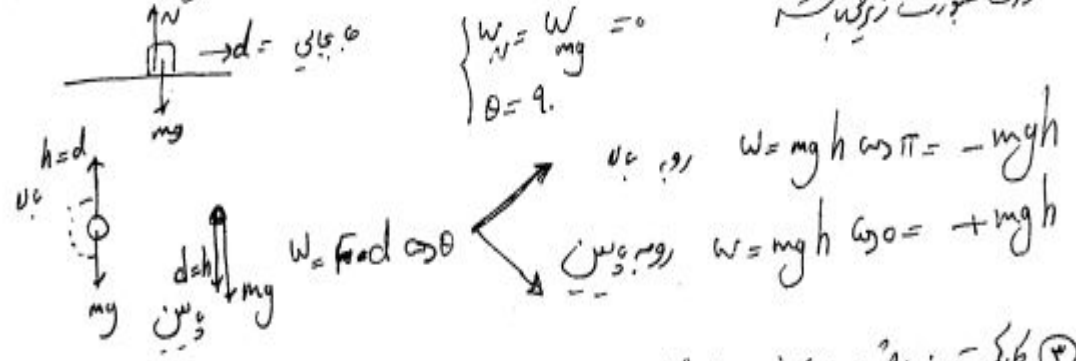 N
→ d = جابجایی
W_N = W_mg = 0
θ = 90
mg
h = d
بالا
mg
d = h
mg
پایین
W = F·d cosθ
رو به بالا W = mgh cos π = - mgh
رو به پایین W = mgh cos 0 = + mgh
۳